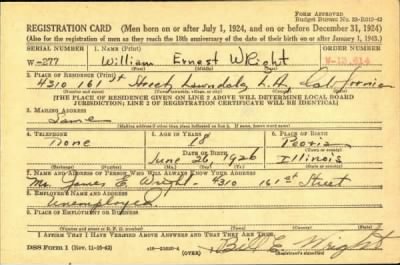 FORM APPROVED
Budget Bureau No. 33-R012-42
REGISTRATION CARD (Men born on or after July 1, 1924, and on or before December 31, 1924)
(Also for the registration of men as they reach the 18th anniversary of the date of their birth on or after January 1, 1943.)
SERIAL NUMBER 1. NAME (Print) ORDER NUMBER
W-277 William Ernest Wright
(First) (Middle) (Last)
2. PLACE OF RESIDENCE (Print)
4310 161st Street Lawndale L.A. California
(Number and street) (Town, township, village, or city) (County) (State)
[THE PLACE OF RESIDENCE GIVEN ON LINE 2 ABOVE WILL DETERMINE LOCAL BOARD
JURISDICTION; LINE 2 OF REGISTRATION CERTIFICATE WILL BE IDENTICAL]
3. MAILING ADDRESS
Same
(Mailing address if other than place indicated on line 2. If same, insert word same)
4. TELEPHONE 5. AGE IN YEARS 6. PLACE OF BIRTH
None 18 Peoria
DATE OF BIRTH (Town or county)
June 26, 1926 Illinois
(Exchange) (Number) (Mo.) (Day) (Yr.) (State or country)
7. NAME AND ADDRESS OF PERSON WHO WILL ALWAYS KNOW YOUR ADDRESS
James E. Wright - 4310 161st Street
8. EMPLOYER'S NAME AND ADDRESS
Unemployed
9. PLACE OF EMPLOYMENT OR BUSINESS
(Number and street or R. F. D. number) (Town) (County) (State)
I AFFIRM THAT I HAVE VERIFIED ABOVE ANSWERS AND THAT THEY ARE TRUE.
DSS Form 1 (Rev. 11-16-42) (OVER) Bill E. Wright
(Registrant's signature)